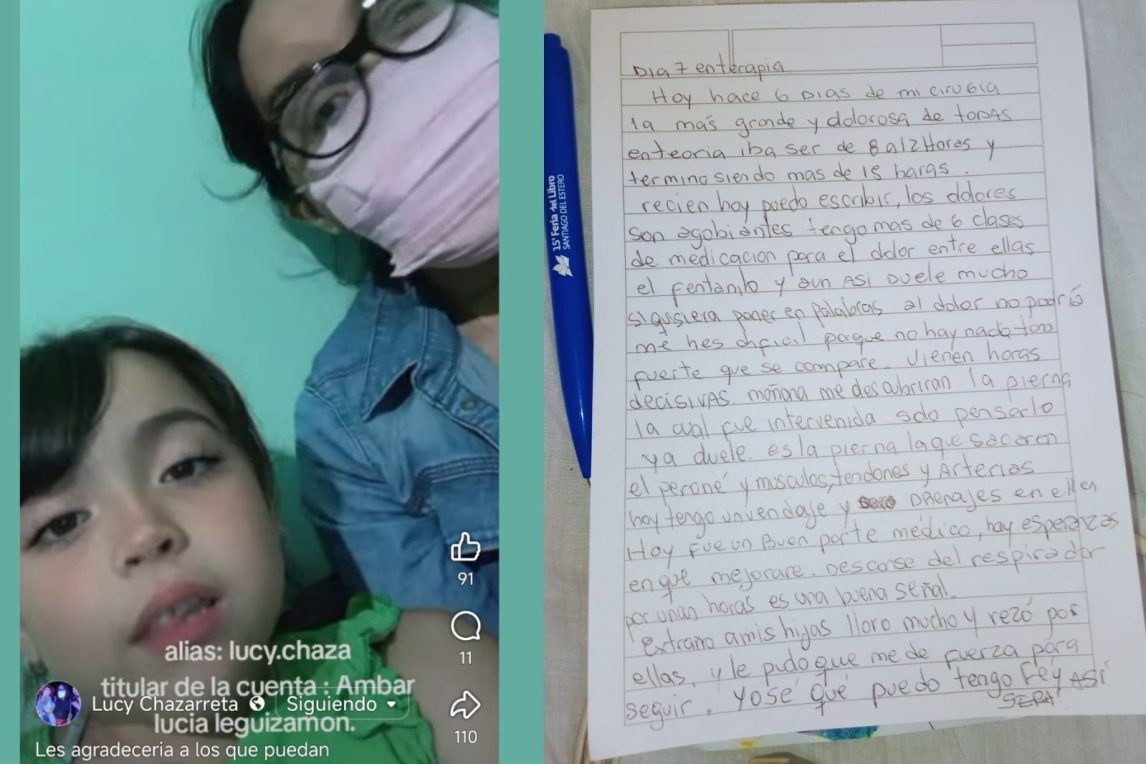 alias: lucy.chaza
titular de la cuenta : Ambar
Lucy Chazarreta
Siguiendo
lucia leguizamon.
Les agradeceria a los que puedan
91
11
110
15ª Feria del Libro
SANTIAGO DEL ESTERO
DIA 7 enterapia
Hoy hace 6 DIAS de mi cirugia
la más grande y dolorosa de todas
enteoria iba ser de 8 al2 Horas y
termino siendo mas de 15 haras.
recien hoy puedo escribir, los dolores
son agobiantes tengo mas de 6 clases
de medicacion para el dolor entre ellas
el fentanilo y aun ASI DUELE mucho
si quisiera poner en palabras al dolor no podría
me hes dificil porque no hay nada tan
fuerte que se compare. Vienen horas
decisivas mañana me descubriran la pierna
la cual fue intervenida solo pensarlo
ya duele. es la pierna la que sacaron
el peroné y musculos, tendones y Arterias
hoy tengo un vendaje y DRENAJES en ella
Hoy fue un Buen parte médico, hay esperanzas
en que mejorare. Descase del respirador
por unan horas es una buena señal.
extraño a mis hijas lloro mucho y rezó por
ellas, y le pido que me de fuerza para
seguir. Yo sé que puedo tengo Fé y ASÍ
SERA.